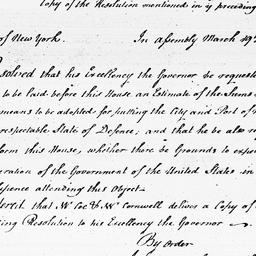 Copy of the Resolution mentioned in ye preceding
of New York. In assembly March 19th
solved that his Excellency the Governor be requeste
to be laid before this House, an Estimate of the Sums
means to be adopted for putting the City and Port of
respectable State of Defence; and that he be also re
form this House, whether there be Grounds to expe
eration of the Government of the United States in
spence attending this Object.
dered that Mr Coe & Mr Cornwell deliver a Copy of
ing Resolution to his Excellency the Governor
By order